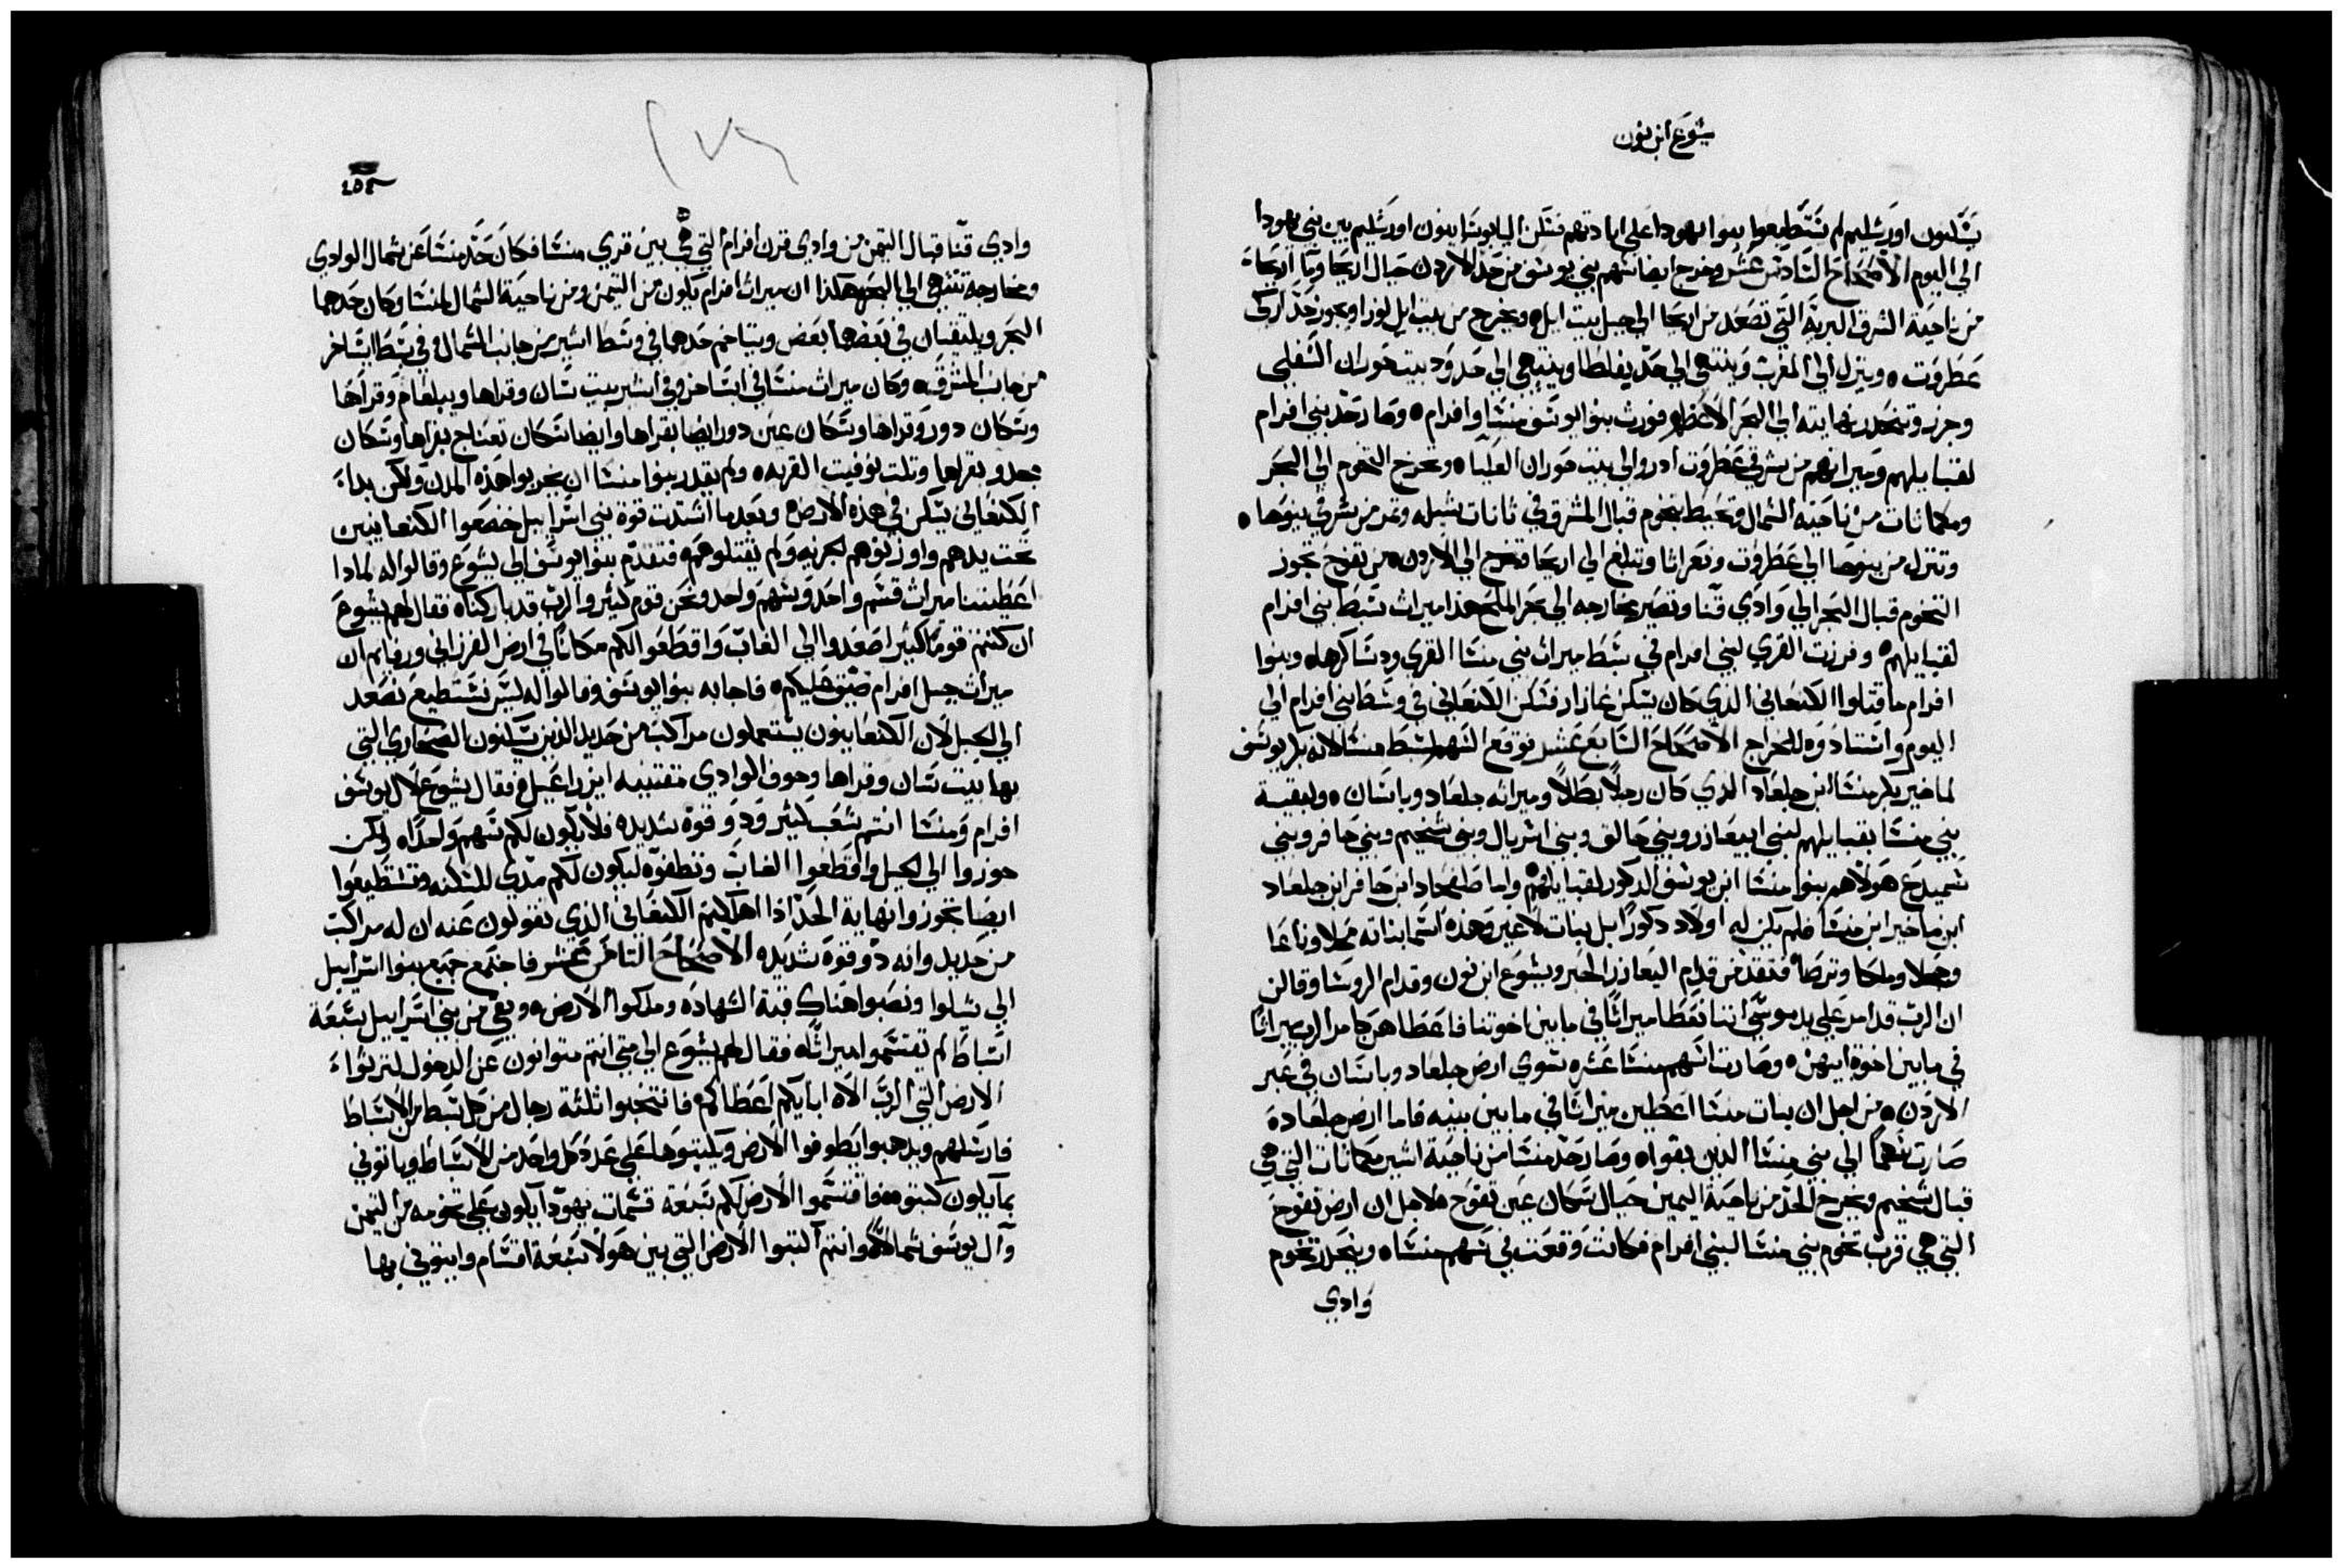 يشوع ابن نون
يسكنون اورشليم لم يستطيعوا بنوا يهودا على ابادتهم فسكن اليابوسانيون اورشليم بين بني يهودا
الي اليوم الاصحاح السادس عشر وخرج ايضا سهم بني يوسف من حد الاردن حيال اريحا وماء اريحاء
من ناحية الشرق البرية التي تصعد من اريحا الي جبل بيت ايل ٥ ويخرج من بيت ايل لوزا ويجوز حد اركي
عطروت ٥ وينزل الي المغرب وينتهي الي حد يفلطا وينتهي الي حدود بيت حوران السفلي
وجزر وتنحدر نهايته الي البحر الاعظم فورث بنوا يوسف منسا وافرام ٥ وصار حد بني افرام
لقبايلهم وميراثهم من شرقي عطروت ادروا الي بيت حوران العليا ٥ وتخرج التخوم الي البحر
ومكماتات من ناحية الشمال وتحيط بتخوم قبال المشرق في تانات شيله وتمر من شرقي ينوحا ٥
وتنزل من ينوحا الي عطروت ونعراثا وتبلغ الي اريحا وتخرج الي الاردن ٥ من تفوح تجوز
التخوم قبال البحر الي وادي قنا وتصير مخارجه الي بحر الملح هذا ميراث سبط بني افرام
لقبايلهم ٥ وفرزت القري لبني افرام في سبط ميراث بني منسا القري ودساكرها ٥ وبنوا
افرام ما قتلوا الكنعاني الذي كان يسكن غازار فسكن الكنعاني في وسط بني افرام الي
اليوم واستادوه للخراج الاصحاح السابع عشر فوقع السهم لسبط منسا لانه بكر يوسف
لماخير بكر منسا ابن جلعاد الذي كان رجلا بطلا وميراثه جلعاد وباسان ٥ ولبقية
بني منسا بقبايلهم لبني ابيعازر وبني حالق وبني اسريال وبني شخيم وبني حافر وبني
شميدع هولاهم بنوا منسا ابن يوسف الذكور لقبايلهم ٥ واما صلفحاد ابن حافر ابن جلعاد
ابن ماخير ابن منسا فلم يكن له اولاد ذكورا بل بنات لا غير وهذه اسما بناته محلا وناعا
وحجلا وملحا وترصا ٥ فتقدمن قدام اليعازر الحبر ويشوع ابن نون وقدام الروسا وقالن
ان الرب قد امر علي يد موسي اننا نعطا ميراثا في ما بين اخوتنا فاعطاهن حسب امر الرب ميراثا
في ما بين اخوة ابيهن ٥ وصارت اسهم منسا عشره سوي ارض جلعاد وباسان في عبر
الاردن ٥ من اجل ان بنات منسا اعطين ميراثا في ما بين بنيه فاما ارض جلعاد ٥
صارت سهما الي بني منسا الذين بقوا ٥ وصار حد منسا من ناحية اشير مكماتات التي هي
قبال شخيم ويخرج الحد من ناحية اليمين حيال سكان عين تفوح ٥ لاجل ان ارض تفوح
التي هي قرب تخوم بني منسا لبني افرام فكانت وقعت في سهم منسا ٥ وينحدر تخوم
وادي
٢٥٤
وادي قنا قبال التيمن من وادي قرن افرام التي هي بين قري منسا فكان حد منسا عن شمال الوادي
ومخارجه تنتهي الي البحر هكذا ان ميراث افرام يكون من التيمن ومن ناحية الشمال لمنسا وكان حدهما
البحر ويلتقيان في بعضهما بعض ويتاخم حدهما في وسط اشير من جانب الشمال وفي سبط ايساخر
من جانب المشرق ٥ وكان ميراث منسا في ايساخر وفي اشير بيت سان وقراها ويبلعام وقراها
وسكان دور وقراها وسكان عين دور ايضا بقراها وايضا سكان تعناج بقراها وسكان
مجدو بقراها وثلث نوفيت القريه ٥ ولم يقدر بنوا منسا ان يخربوا هذه المدن ولكن بداء
الكنعاني يسكن في هذه الارض ٥ وبعدما اشتدت قوة بني اسراييل خضعوا الكنعانيين
تحت يدهم واوزنوهم الجزيه ولم يقتلوهم ٥ فتقدم بنوا يوسف الي يشوع وقالوا له لماذا
اعطيتنا ميراث قسم واحد وسهم واحد ونحن قوم كثير والرب قد باركنا ٥ فقال لهم يشوع
ان كنتم قوما كثيرا اصعدوا الي الغاب واقطعوا لكم مكانا في ارض الفرزاني ورفايم ان
ميراث جبل افرام ضيق عليكم ٥ فاجابه بنوا يوسف وقالوا له ليس نستطيع نصعد
الي الجبل لان الكنعانيون يستعملون مراكب من حديد الذين يسكنون الصحاري التي
بها بيت سان وقراها وجوف الوادي مقتنيه ايزراعيل ٥ فقال يشوع لال يوسف
افرام ومنسا انتم شعب كثير وذو قوة شديده فلا يكون لكم سهم واحدا ٥ ولكن
جوزوا الي الجبل واقطعوا الغاب وتنظفوه ليكون لكم مدي للسكنه وتستطيعوا
ايضا تجوزوا نهاية الحد اذا اهلكتم الكنعاني الذي تقولون عنه ان له مراكب
من حديد وانه ذو قوة شديده الاصحاح الثامن عشر فاجتمع جميع بنوا اسراييل
الي شلوا ونصبوا هناك قبة الشهاده وملكوا الارض ٥ وبقي من بني اسراييل سبعة
اسباط لم يقتسموا ميراثا ٥ فقال لهم يشوع الي متي انتم متوانون عن الدخول لترثواء
الارض التي الرب الاه ابايكم اعطاكم ٥ فانتخبوا ثلثة رجال من كل سبط من الاسباط
فارسلهم ويذهبوا يطوفوا الارض ويكتبوها علي عدد كل واحد من الاسباط وياتوني
بما يكون كتبوه ٥ فاقتسموا الارض لكم سبعة قسمات يهودا يكون علي تخومه من التيمن
وآل يوسف شمالا ٥ وانتم اكتبوا الارض التي بين هولا سبعة اقسام وايتوني بها